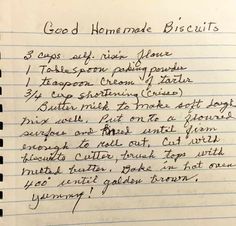 Good Homemade Biscuits
3 cups self risin flour
1 Tablespoon baking powder
1 teaspoon Cream of tarter
3/4 cup shortening (Crisco)
Butter milk to make soft dough
mix well. Put on to a floured
surface and knead until firm
enough to roll out. Cut with
biscuits cutter, brush tops with
melted butter. Bake in hot oven
400° until golden brown.
yummy!